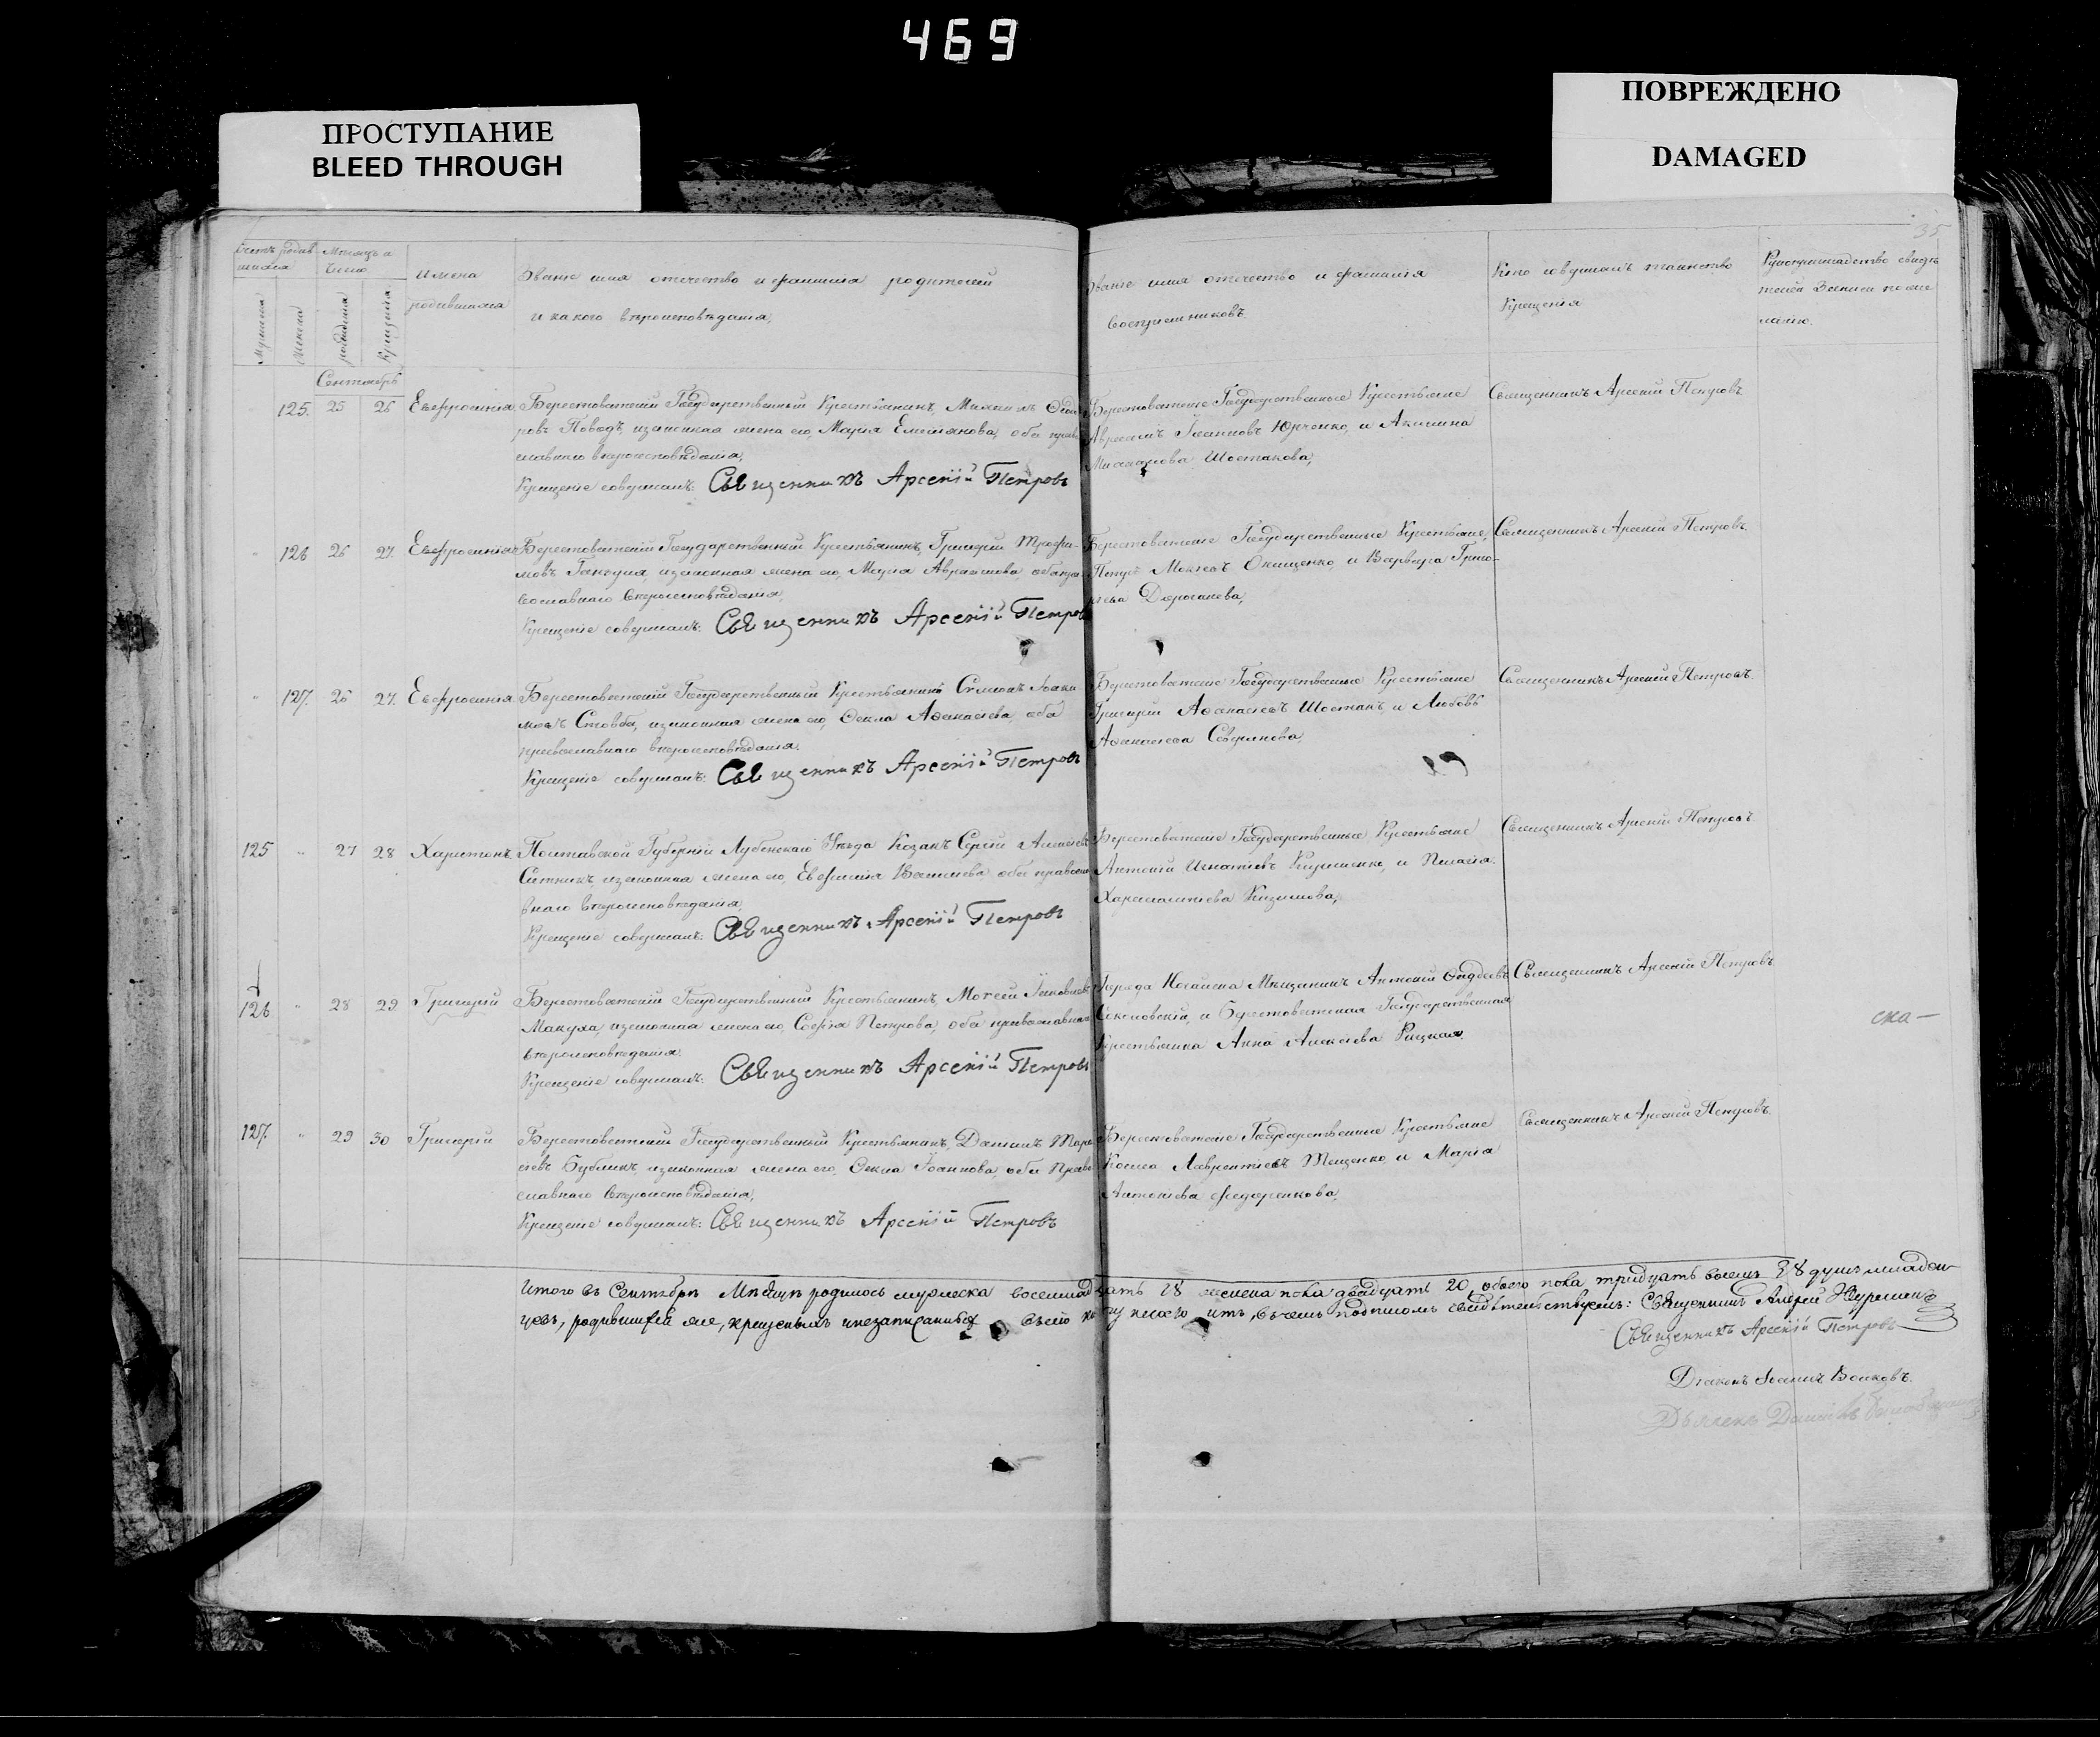 469
ПРОСТУПАНИЕ
BLEED THROUGH
ПОВРЕЖДЕНО
DAMAGED
35
Счетъ родив
шихся
Мѣсяцъ и
число
Имена
родившихся
Званіе имя отечество и фамилія родителей
и какого вѣроисповѣданія,
мужеска
женска
рожденія
крещенія
Званіе имя отечество и фамилія
воспріемниковъ.
Кто совершалъ таинство
Крещенія
Рукоприкладство свидѣ
телей записи по же
ланію.
Сентябрь
125. 25 26 Евфросинія
Берестоватскій Государственный Крестьянинъ, Михаилъ Ѳедо
ровъ законная жена его, Марія Емеліанова, оба право
славнаго вѣроисповѣданія,
Крещеніе совершалъ: Священникъ Арсеній Петровъ
Берестоватскіе Государственные Крестьяне
Авраамъ Іоанновъ Юрченко, и Акилина
Михайлова Шостакова,
Священникъ Арсеній Петровъ
126 26 27. Евфросинія
Берестоватскій Государственный Крестьянинъ, Григорій Трофи-
мовъ законная жена его, Марія Авраамова, оба пра
вославнаго вѣроисповѣданія,
Крещеніе совершалъ: Священникъ Арсеній Петровъ
Берестоватскіе Государственные Крестьяне,
Петръ Онищенко, и Варвара Григо-
рьева
Священникъ Арсеній Петровъ.
127. 26 27. Евфросинія
Берестоватскій Государственный Крестьянинъ Симеонъ Іоаки
мовъ Стовба, законная жена его, Ѳекла Аѳанасіева, оба
православнаго вѣроисповѣданія.
Крещеніе совершалъ: Священникъ Арсеній Петровъ
Берестоватскіе Государственные Крестьяне
Григорій Аѳанасіевъ Шостакъ, и Любовь
Аѳанасіева
Священникъ Арсеній Петровъ.
125 27 28 Харитонъ
Полтавской Губерніи Лубенскаго Уѣзда Козакъ Сергій Алексѣевъ
Ситникъ, законная жена его, Евфимія Василіева оба правосла
внаго вѣроисповѣданія,
Крещеніе совершалъ: Священникъ Арсеній Петровъ
Берестоватскіе Государственные Крестьяне
Антоній Игнатіевъ и Пелагія
Харалампіева
Священникъ Арсеній Петровъ
126 28 29 Григорій
Берестоватскій Государственный Крестьянинъ, Моѵсей Іаковлевъ
Макуха, законная жена его, Софія Петрова, оба православнаго
вѣроисповѣданія.
Крещеніе совершалъ: Священникъ Арсеній Петровъ
Города Ногайска Мѣщанинъ Антоній Ѳаддеевъ
Соколовскій, и Берестоватская Государственная
Крестьянка Анна Алексіева Рицкая.
Священникъ Арсеній Петровъ
127. 29 30 Григорій
Берестоватскій Государственный Крестьянинъ, Даніилъ Тара
сіевъ Бубликъ, законная жена его, Ѳекла Іоаннова, оба право
славнаго вѣроисповѣданія,
Крещеніе совершалъ: Священникъ Арсеній Петровъ
Берестоватскіе Государственные Крестьяне
Косма Лаврентіевъ Тищенко, и Марія
Антоніева Федоренкова,
Священникъ Арсеній Петровъ
Итого въ Сентябрѣ Мѣсяцѣ родилось мужеска восемнадцать 18 женска пола двадцать 20 обоего пола тридцать восемь 38 душъ младен
цевъ, родившихся же, крещеныхъ и незаписанныхъ въ сію книгу никого нѣтъ, въ чемъ подписомъ свидѣтельствуемъ: Священникъ
Священникъ Арсеній Петровъ
Діаконъ Іоаннъ Волковъ.